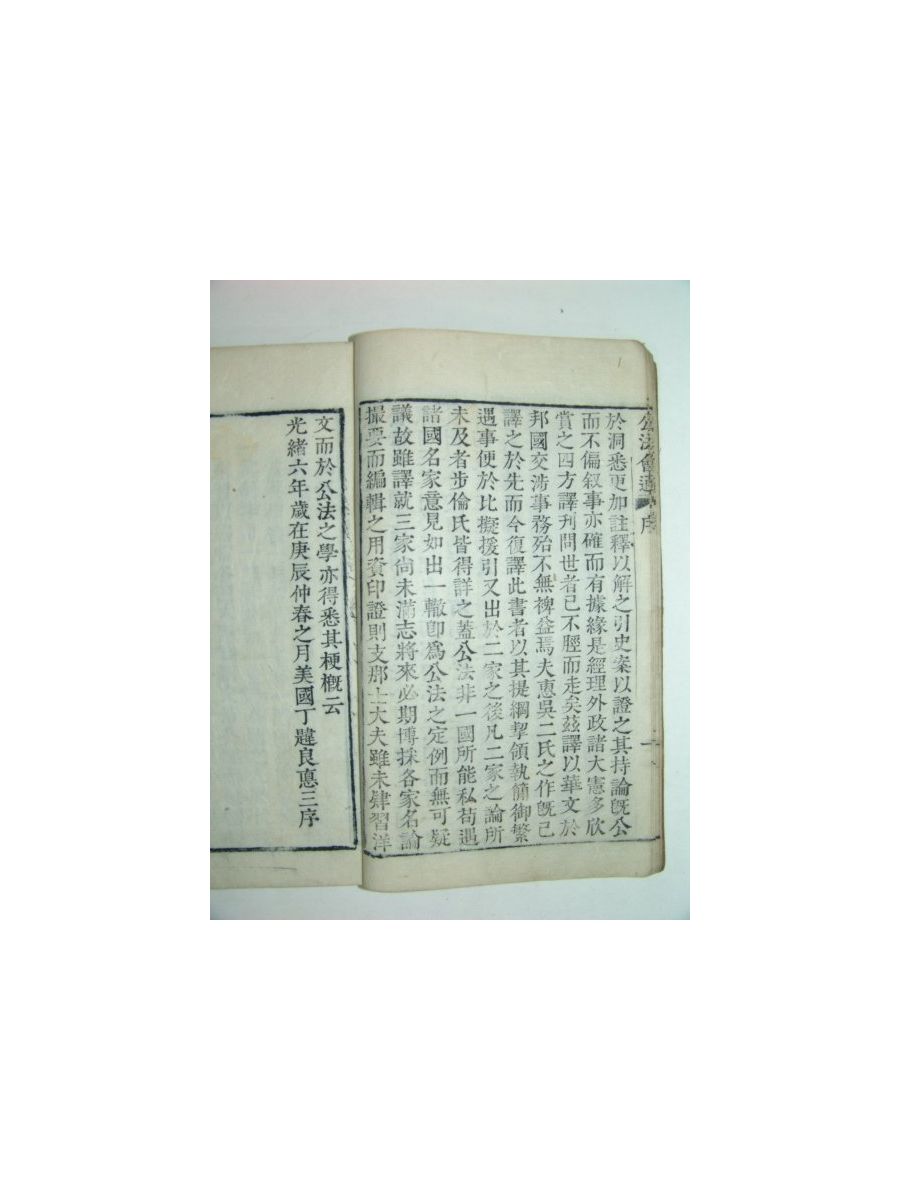 公法會通 序
於洞悉更加註釋以解之引史案以證之其持論旣公
而不偏叙事亦確而有據緣是經理外政諸大憲多欣
賞之四方譯刊問世者已不脛而走矣茲譯以華文於
邦國交涉事務殆不無裨益焉夫惠吳二氏之作旣已
譯之於先而今復譯此書者以其提綱挈領執簡御繁
遇事便於比擬援引又出於二家之後凡二家之論所
未及者步倫氏皆得詳之蓋公法非一國所能私苟遇
諸國名家意見如出一轍卽爲公法之定例而無可疑
議故雖譯就三家尚未滿志將來必期博採各家名論
撮要而編輯之用資印證則支那士大夫雖未肄習洋
文而於公法之學亦得悉其梗概云
光緒六年歲在庚辰仲春之月美國丁韙良惪三序